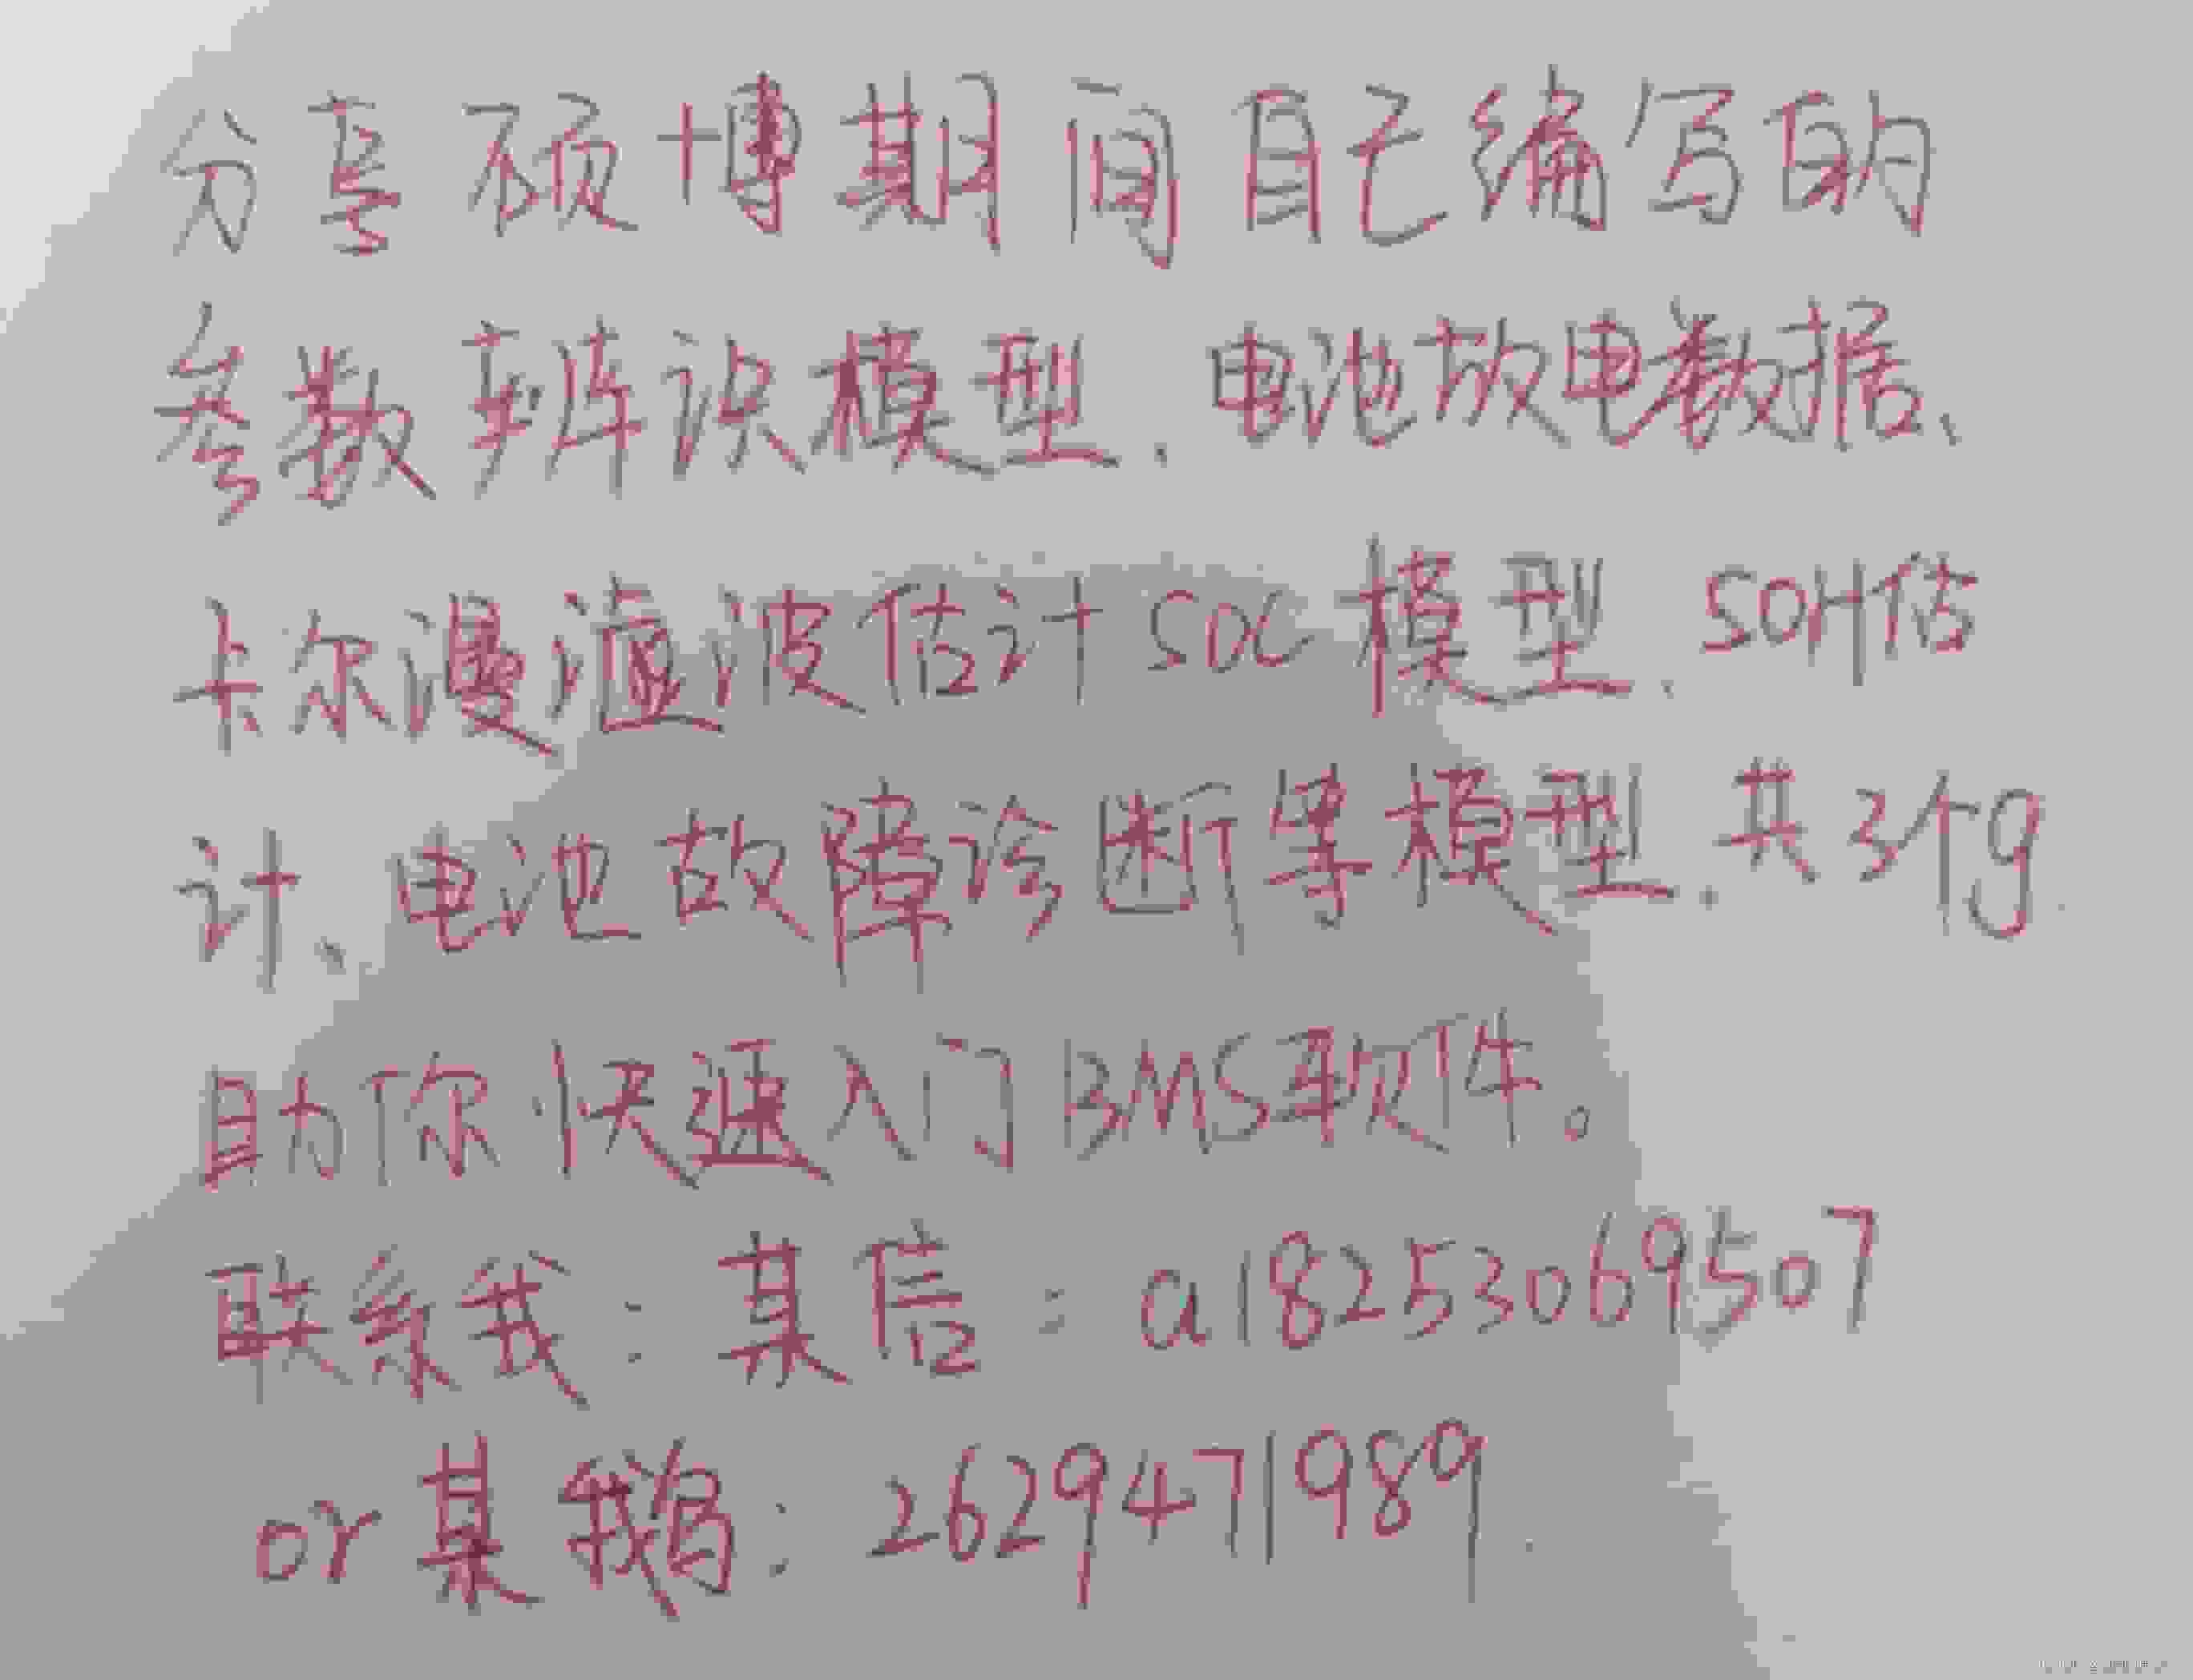 分享硕博期间自己编写的
参数辨识模型、电池放电数据、
卡尔漫滤波估计SOC模型、SOH估
计、电池故障诊断等模型、共3个g
助你快速入门BMS软件。
联系我：某信：a18253069507
or某鹅：2629471989